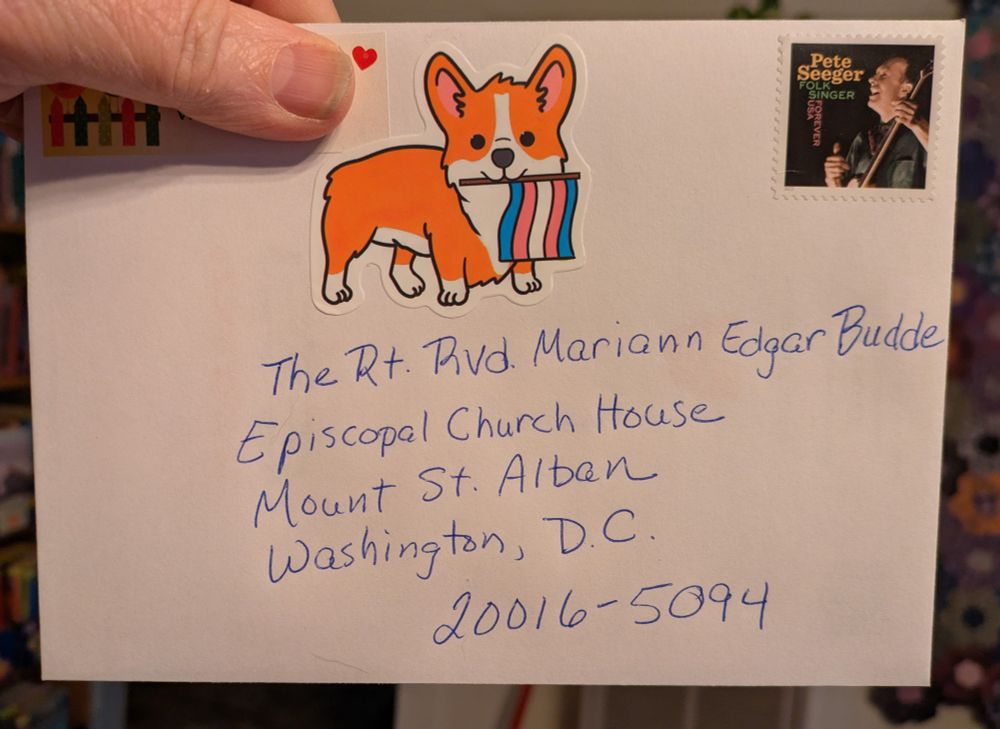 Pete
Seeger
FOLK
SINGER
FOREVER
USA
The Rt. Rvd. Mariann Edgar Budde
Episcopal Church House
Mount St. Alban
Washington, D.C.
20016-5094